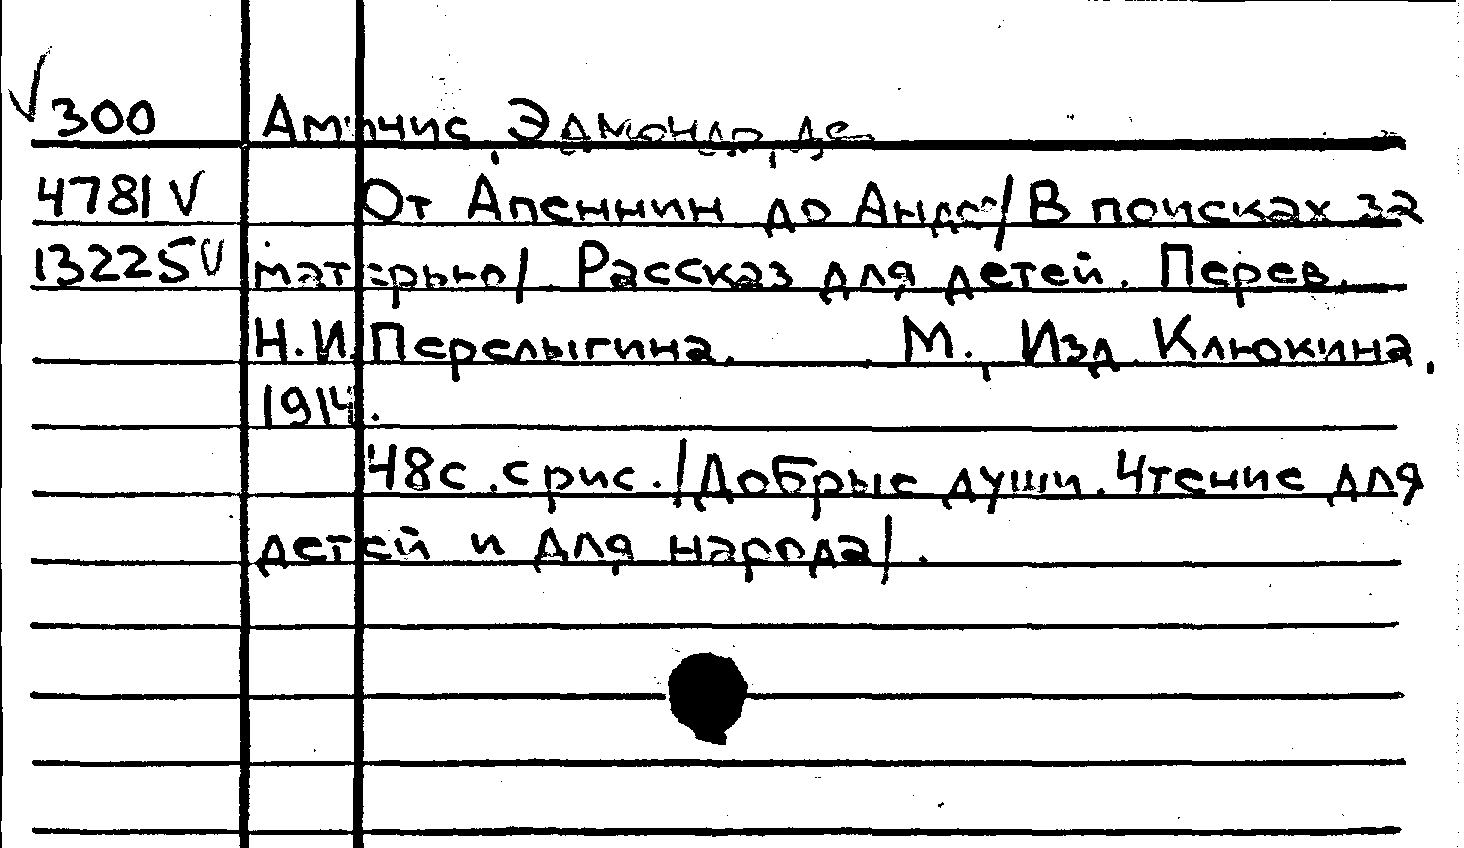 √ 300 Амичис, Эдмондо, де
4781 V От Апеннин до Анд/В поисках за
13225 V матерью/ Рассказ для детей. Перев.
Н.И. Перелыгина. М., Изд. Клюкина,
1914.
48с. с рис./Добрые души. Чтение для
детей и для народа/.